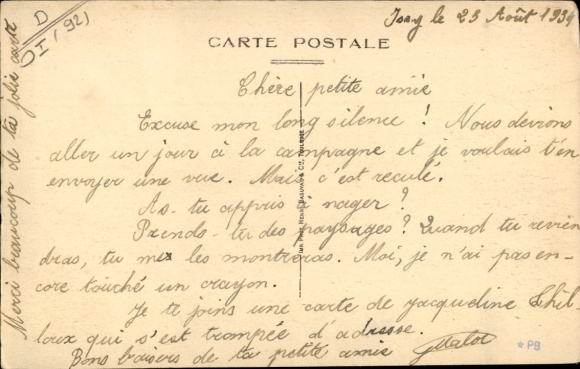 D
I (92)
Issy le 23 Août 1934
CARTE POSTALE
Chère petite amie
Excuse mon long silence ! Nous devions
aller un jour à la campagne et je voulais t'en
envoyer une vue. Mais c'est reculé.
As-tu appris à nager ?
Prends-tu des paysages ? Quand tu revien
dras, tu me les montreras. Moi, je n'ai pas en-
core touché un crayon.
Je te joins une carte de Jacqueline
loux qui s'est trompée d'adresse.
Bons baisers de ta petite amie
Merci beaucoup de ta jolie carte
*PB